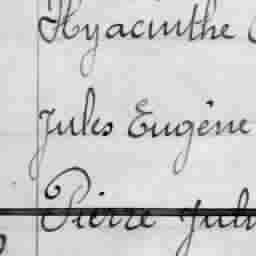 Hyacinthe
Jules Eugène
Pierre